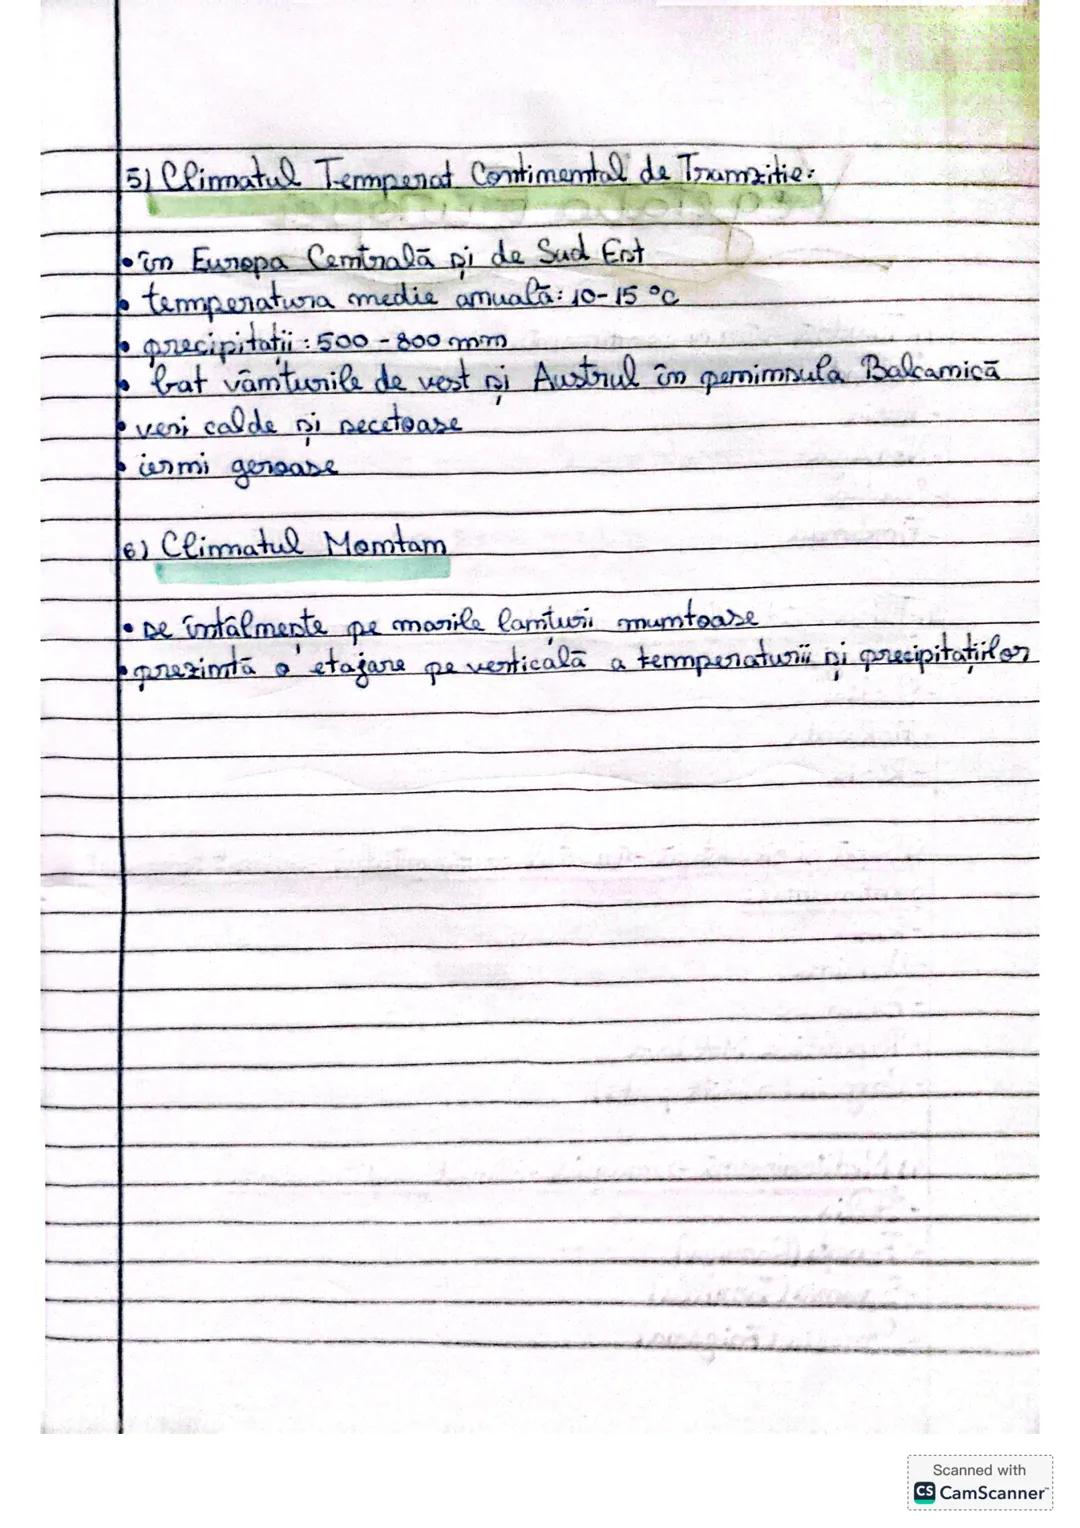 5) Climatul Temperat Continental de Tranziție:
• în Europa Centrală și de Sud Est
• temperatura medie anuală: 10-15 °C
• precipitații: 500 - 800 mm
• bat vânturile de vest și Austrul în peninsula Balcanică
• veri calde și secetoase
• ierni geroase
6) Climatul Montan
• se întâlnește pe marile lanțuri muntoase
• prezintă o etajare pe verticală a temperaturii și precipitațiilor
Scanned with
CS CamScanner